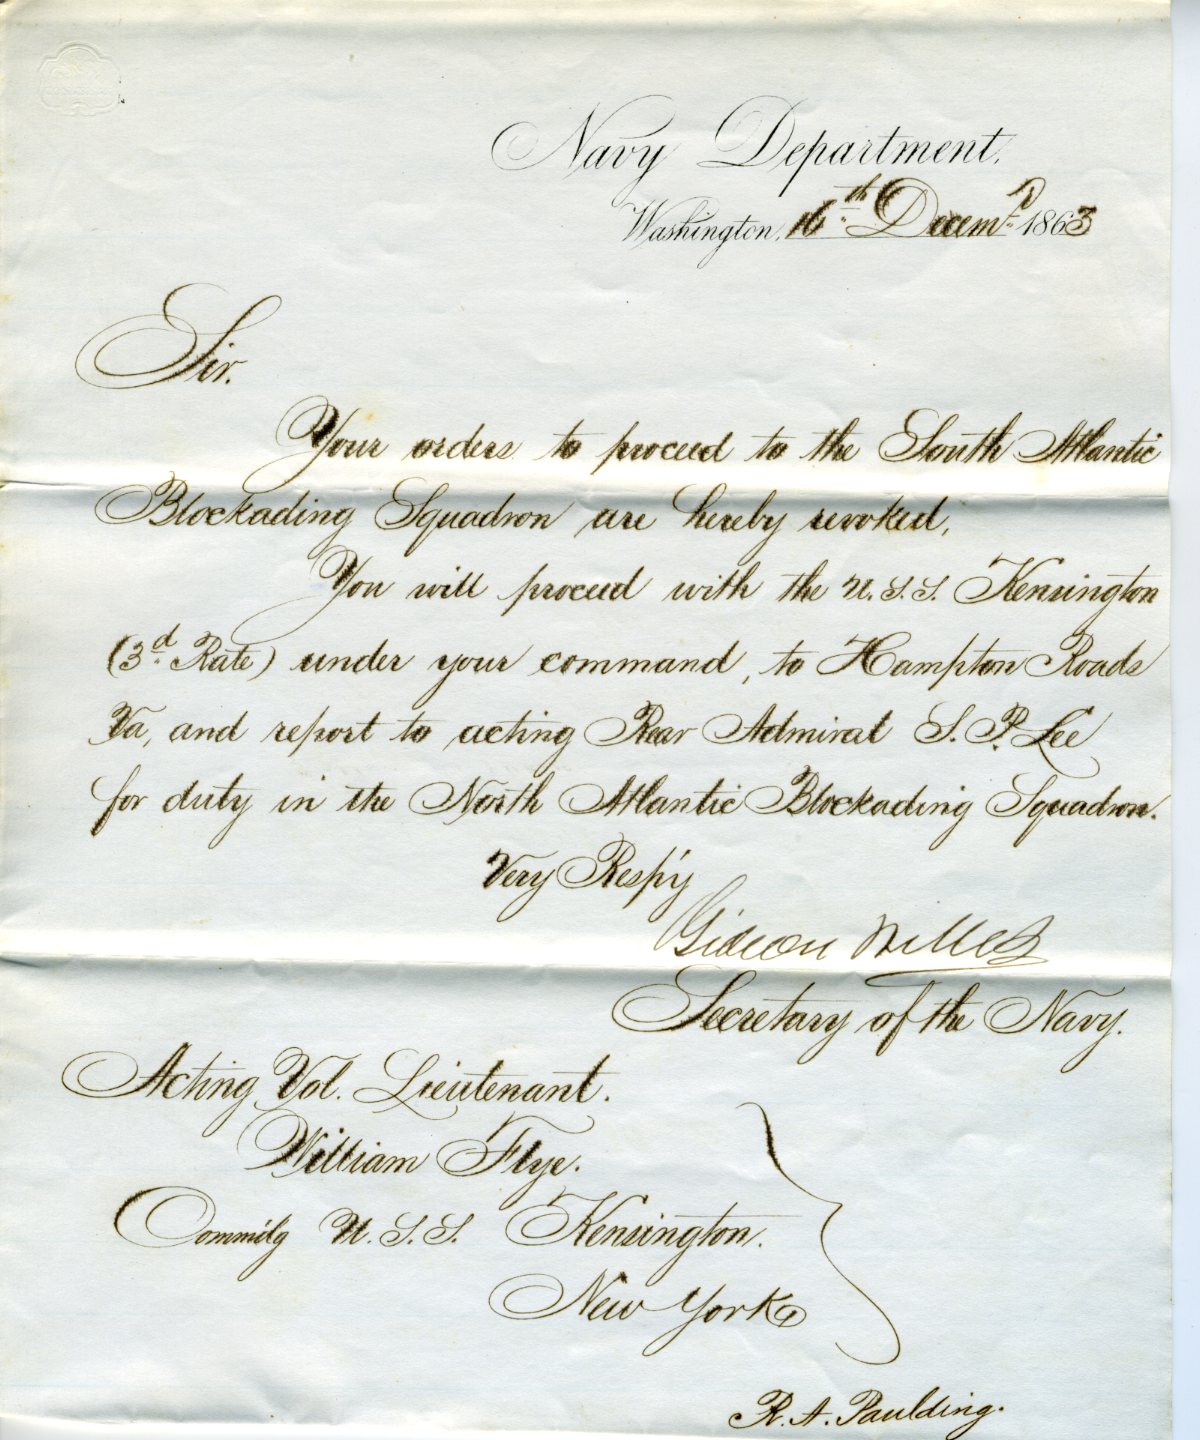 Navy Department.
Washington, 16th Decemr 1863
Sir.
Your orders to proceed to the South Atlantic
Blockading Squadron are hereby revoked,
You will proceed with the U.S.S. Kensington
(3d Rate) under your command, to Hampton Roads
Va, and report to acting Rear Admiral S. P. Lee
for duty in the North Atlantic Blockading Squadron.
Very Resp'y
Gideon Welles
Secretary of the Navy.
Acting Vol. Lieutenant.
William Flye.
Comm'd'g U.S.S. Kensington.
New York
R. A. Paulding.